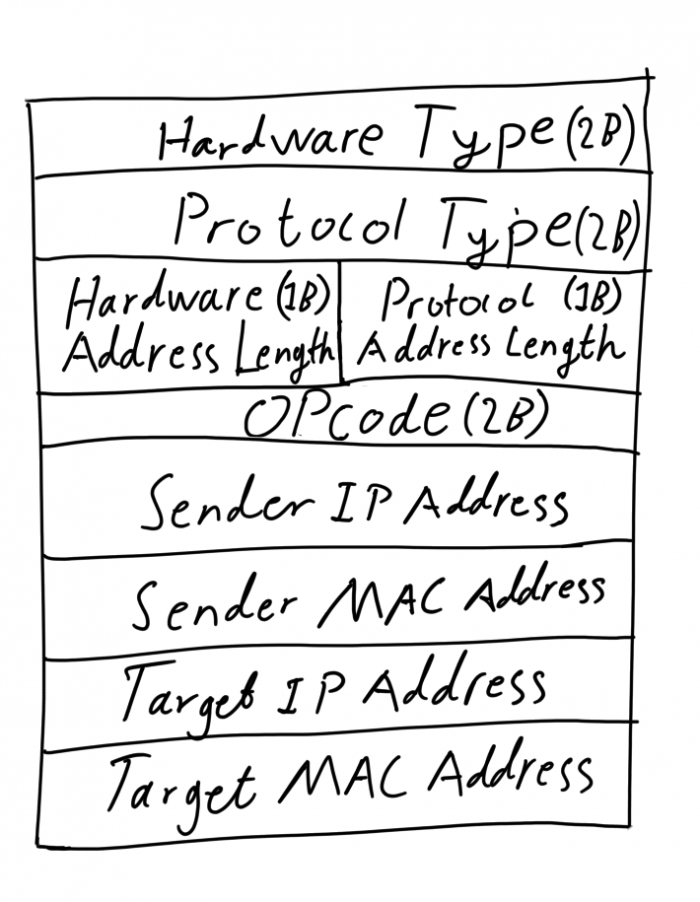 Hardware Type (2B)
Protocol Type (2B)
Hardware (1B)
Address Length
Protocol (1B)
Address Length
OPcode (2B)
Sender IP Address
Sender MAC Address
Target IP Address
Target MAC Address